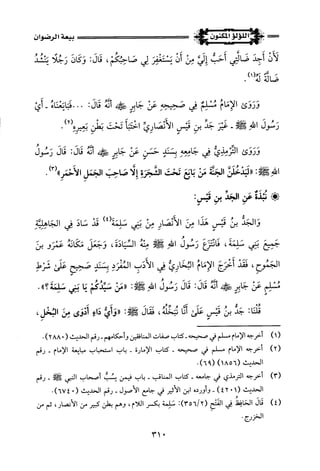 بيعة الرضوان
اللؤلؤ المكنون
لَأَنْ أَجِدَ ضَالَّتِي أَحَبُّ إِلَيَّ مِنْ أَنْ يَسْتَغْفِرَ لِي صَاحِبُكُمْ، قَالَ: وَكَانَ رَجُلًا يَنْشُدُ
ضَالَّةً لَهُ(١).
وَرَوَى الإِمَامُ مُسْلِمٌ فِي صَحِيحِهِ عَنْ جَابِرٍ ﷺ أَنَّهُ قَالَ: ...فَبَايَعْنَاهُ - أَيْ
رَسُولَ اللهِ ﷺ - غَيْرَ جَدِّ بنِ قَيْسٍ الأَنْصَارِيِّ اخْتَبَأَ تَحْتَ بَطْنِ بَعِيرِهِ(٢).
وَرَوَى التِّرْمِذِيُّ فِي جَامِعِهِ بِسَنَدٍ حَسَنٍ عَنْ جَابِرٍ ﷺ أَنَّهُ قَالَ: قَالَ رَسُولُ
اللهِ ﷺ: «لَيَدْخُلَنَّ الجَنَّةَ مَنْ بَايَعَ تَحْتَ الشَّجَرَةِ إِلَّا صَاحِبَ الجَمَلِ الأَحْمَرِ»(٣).
* نُبْذَةٌ عَنِ الجَدِّ بنِ قَيْسٍ:
وَالجَدُّ بنُ قَيْسٍ هَذَا مِنَ الأَنْصَارِ مِنْ بَنِي سَلِمَةَ(٤) قَدْ سَادَ فِي الجَاهِلِيَّةِ
جَمِيعَ بَنِي سَلِمَةَ، فَانْتَزَعَ رَسُولُ اللهِ ﷺ مِنْهُ السِّيَادَةَ، وَجَعَلَ مَكَانَهُ عَمْرَو بنَ
الجَمُوحِ، فَقَدْ أَخْرَجَ الإِمَامُ البُخَارِيُّ فِي الأَدَبِ المُفْرَدِ بِسَنَدٍ صَحِيحٍ عَلَى شَرْطِ
مُسْلِمٍ عَنْ جَابِرٍ ﷺ قَالَ: قَالَ رَسُولُ اللهِ ﷺ: «مَنْ سَيِّدُكُمْ يَا بَنِي سَلِمَةَ؟».
قُلْنَا: جَدُّ بنُ قَيْسٍ عَلَى أَنَّا نُبَخِّلُهُ، فَقَالَ ﷺ: «وَأَيُّ دَاءٍ أَدْوَى مِنَ البُخْلِ،
(١) أخرجه الإمام مسلم في صحيحه - كتاب صفات المنافقين وأحكامهم - رقم الحديث (٢٨٨٠).
(٢) أخرجه الإمام مسلم في صحيحه - كتاب الإمارة - باب استحباب مبايعة الإمام - رقم
الحديث (١٨٥٦) (٦٩).
(٣) أخرجه الترمذي في جامعه - كتاب المناقب - باب فيمن يسُبُّ أصحاب النبي ﷺ - رقم
الحديث (٤٢٠١) - وأورده ابن الأثير في جامع الأصول - رقم الحديث (٦٧٤٠).
(٤) قَالَ الحَافِظُ فِي الفَتْحِ (٣٥٦/٢): سَلِمة بكسر اللام، وهم بطن كبير من الأنصار، ثم من
الخزرج.
٣١٠